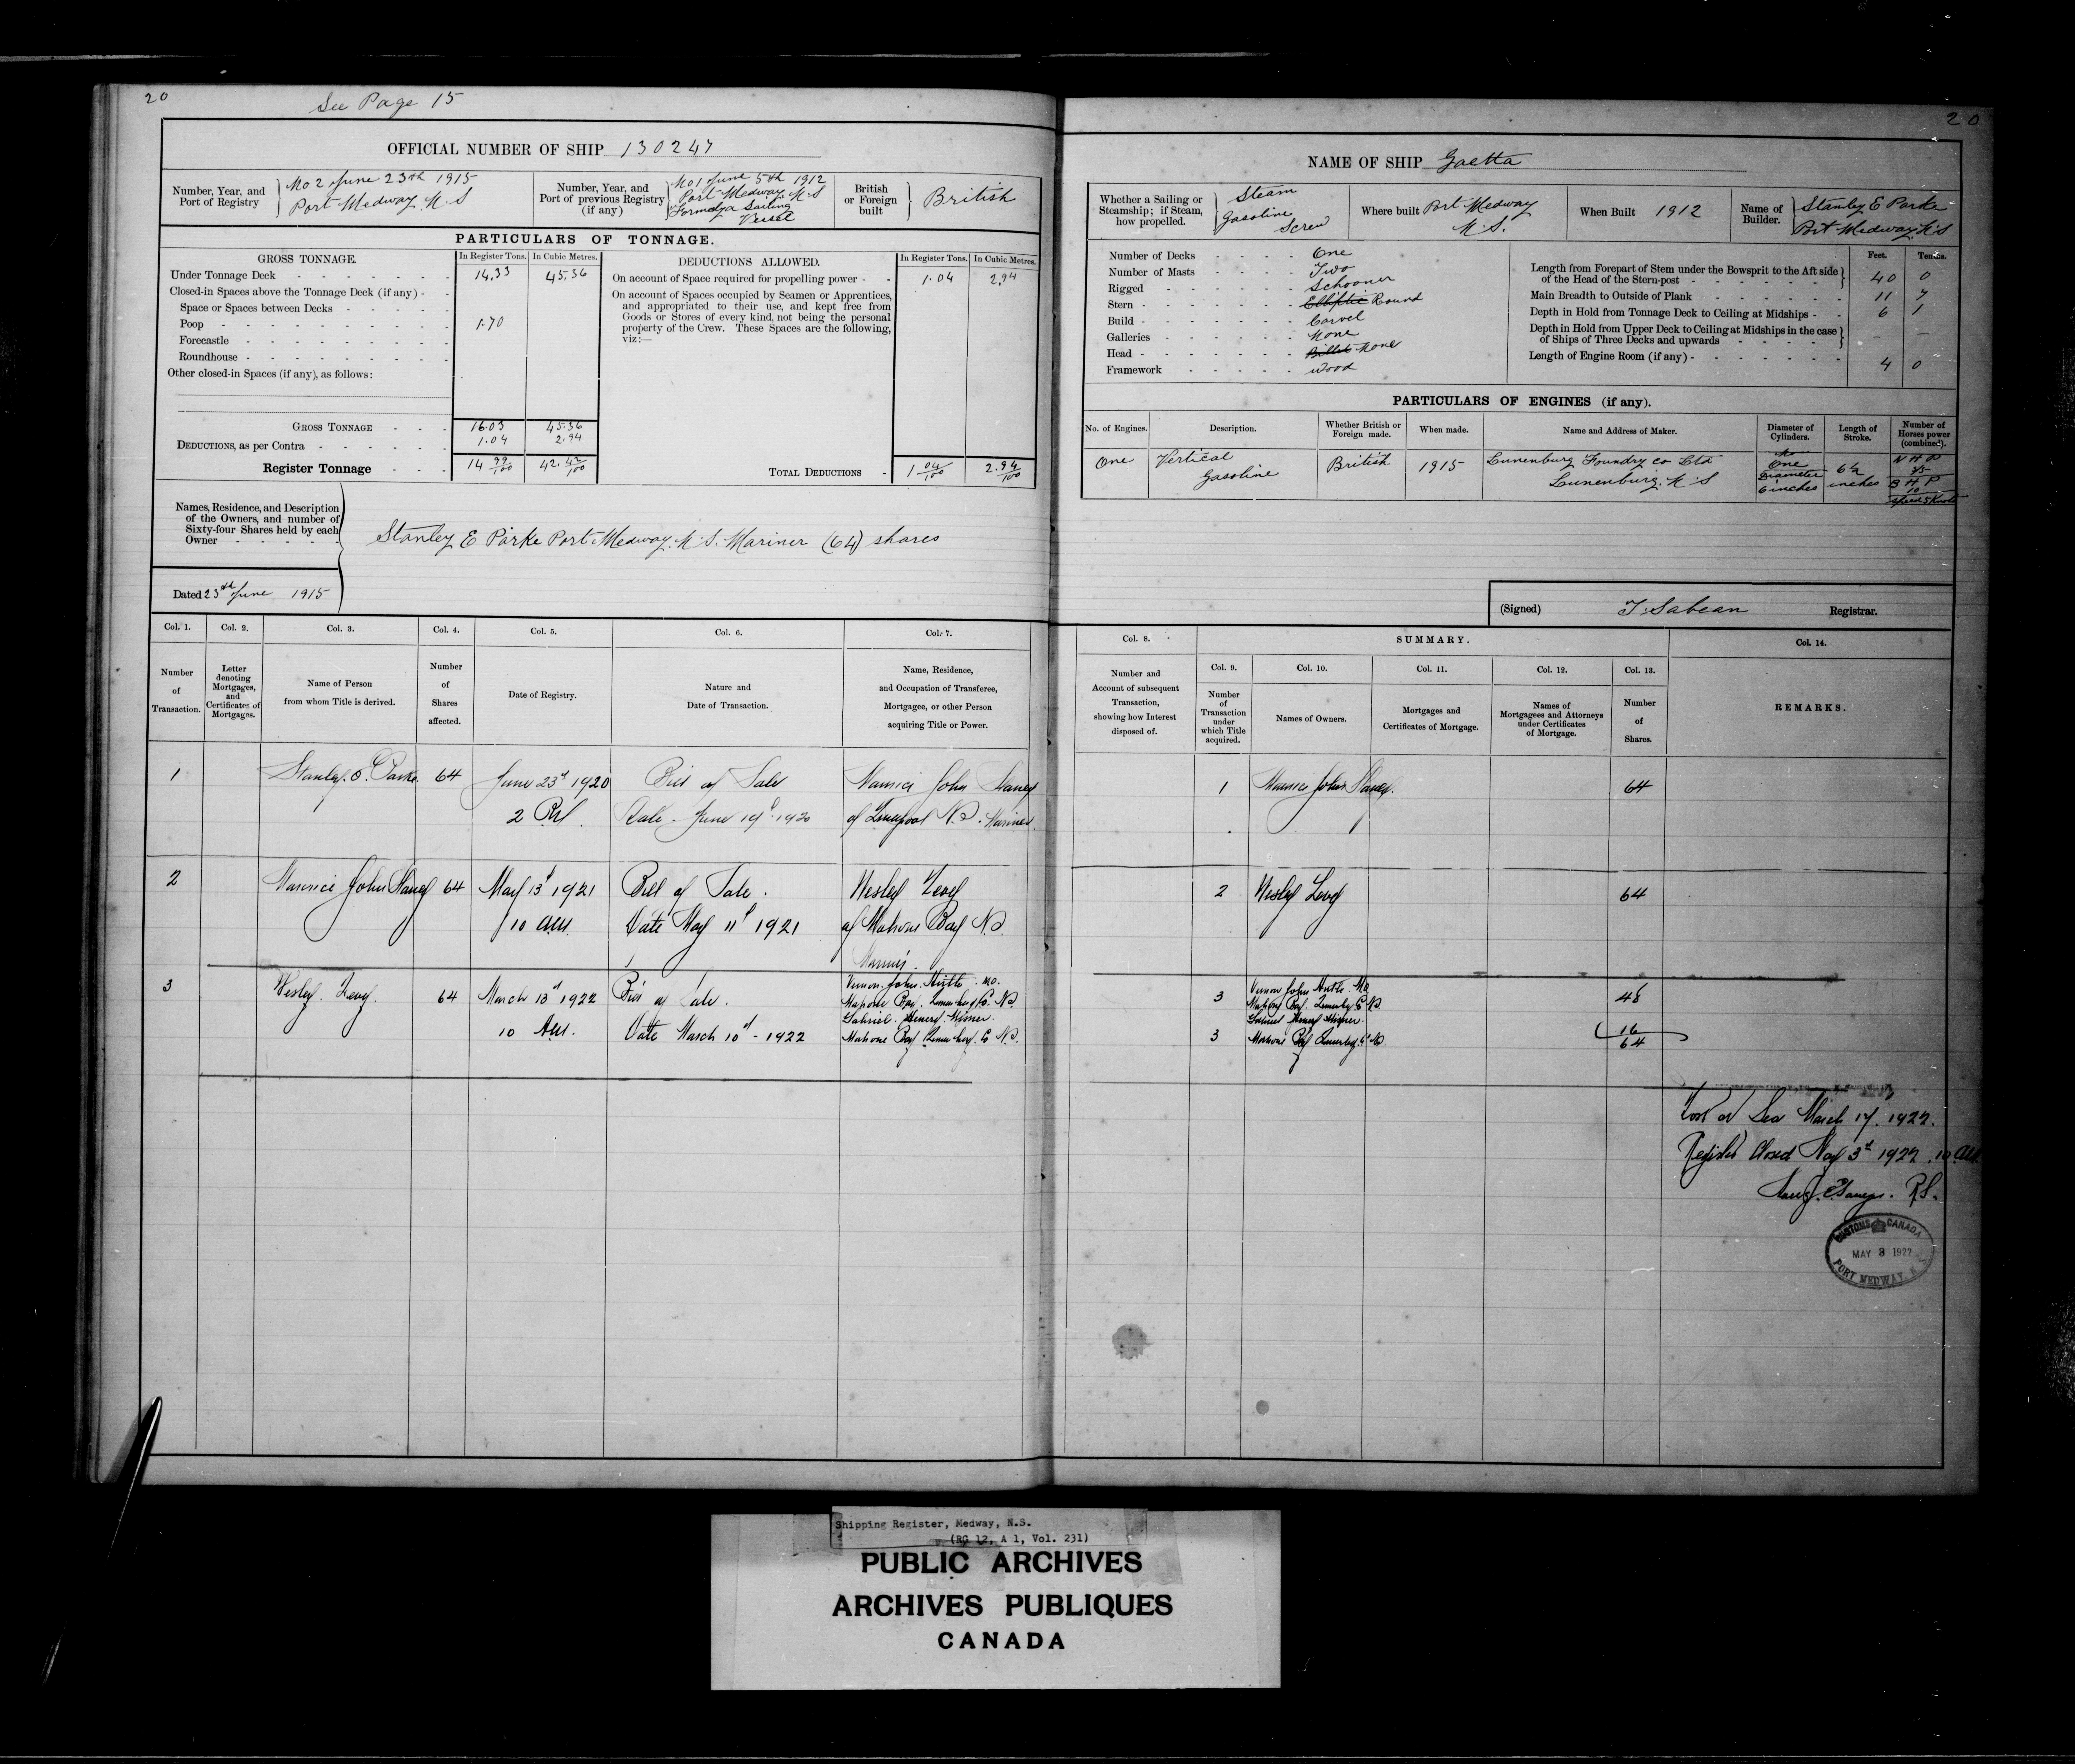 20
See Page 15
OFFICIAL NUMBER OF SHIP 130247
Number, Year, and Port of Registry
No 2 June 23th 1915
Port Medway N S
Number, Year, and Port of previous Registry (if any)
No 1 June 5th 1912
Port Medway N S
Formerly a Sailing
Vessel
British or Foreign built
British
PARTICULARS OF TONNAGE.
GROSS TONNAGE. In Register Tons. In Cubic Metres.
Under Tonnage Deck 14.33 45.36
Closed-in Spaces above the Tonnage Deck (if any)
Space or Spaces between Decks
Poop 1.70
Forecastle
Roundhouse
Other closed-in Spaces (if any), as follows:
GROSS TONNAGE 16.03 45.36
DEDUCTIONS, as per Contra 1.04 2.94
Register Tonnage 14 99/100 42.42/100
DEDUCTIONS ALLOWED. In Register Tons. In Cubic Metres.
On account of Space required for propelling power 1.04 2.94
On account of Spaces occupied by Seamen or Apprentices,
and appropriated to their use, and kept free from
Goods or Stores of every kind, not being the personal
property of the Crew. These Spaces are the following,
viz:—
TOTAL DEDUCTIONS 1 04/100 2.94/100
Names, Residence, and Description
of the Owners, and number of
Sixty-four Shares held by each
Owner
Stanley E Parke Port Medway. N. S. Mariner (64) shares
Dated 23th June 1915
Col. 1. Col. 2. Col. 3. Col. 4. Col. 5. Col. 6. Col. 7.
Number of Transaction.
Letter denoting Mortgages, and Certificates of Mortgages.
Name of Person from whom Title is derived.
Number of Shares affected.
Date of Registry.
Nature and Date of Transaction.
Name, Residence, and Occupation of Transferee, Mortgagee, or other Person acquiring Title or Power.
1 Stanley. E. Parke 64 June 23d 1920 Bill of Sale Maurice John
2 P.M. Date June 19th 1920 of Liverpool N.S. Mariner.
2 Maurice John 64 May 13th 1921 Bill of Sale. Wesley Levy
10 am. Date May 11th 1921 of Mahone Bay N.S.
Mariner.
3 Wesley. Levy. 64 March 13th 1922 Bill of Sale. Vernon. John. MD.
Mahone Bay. Lunenburg Co. N.S.
Gabriel. Henry.
10 Am. Date March 10th - 1922 Mahone Bay Lunenburg. Co N.S.
20
NAME OF SHIP Gaetta
Whether a Sailing or Steamship; if Steam, how propelled.
Steam
Gasoline
Screw
Where built Port Medway
N. S.
When Built 1912
Name of Builder.
Stanley E Parke
Port Medway. N S
Number of Decks One
Number of Masts Two
Rigged Schooner
Stern Elliptic Round
Build Carvel
Galleries None
Head Billet None
Framework Wood
Feet. Tenths.
Length from Forepart of Stem under the Bowsprit to the Aft side of the Head of the Stern-post 40 0
Main Breadth to Outside of Plank 11 7
Depth in Hold from Tonnage Deck to Ceiling at Midships 6 1
Depth in Hold from Upper Deck to Ceiling at Midships in the case of Ships of Three Decks and upwards - -
Length of Engine Room (if any) 4 0
PARTICULARS OF ENGINES (if any).
No. of Engines. Description. Whether British or Foreign made. When made. Name and Address of Maker. Diameter of Cylinders. Length of Stroke. Number of Horses power (combined).
One Vertical Gasoline British 1915 Lunenburg Foundry co Ltd
Lunenburg. N S
One
Diameter
6 inches
6½
inches
N H P
B H P
10
speed 5 Knots
(Signed) T. Sabean Registrar.
Col. 8. SUMMARY. Col. 14.
Col. 9. Col. 10. Col. 11. Col. 12. Col. 13.
Number and Account of subsequent Transaction, showing how Interest disposed of.
Number of Transaction under which Title acquired.
Names of Owners.
Mortgages and Certificates of Mortgage.
Names of Mortgagees and Attorneys under Certificates of Mortgage.
Number of Shares.
REMARKS.
1 Maurice John 64
2 Wesley Levy 64
3 Vernon John MD 48
Mahone Bay. Lunenburg Co N.S.
Gabriel Henry
3 Mahone Bay Lunenburg Co NS. 16
64
Lost at Sea March 17. 1922.
Register Closed May 3d 1922. 10 am.
R.S.
CUSTOMS CANADA
MAY 3 1922
PORT MEDWAY, N.S.
Shipping Register, Medway, N.S.
(RG 12, A 1, Vol. 231)
PUBLIC ARCHIVES
ARCHIVES PUBLIQUES
CANADA